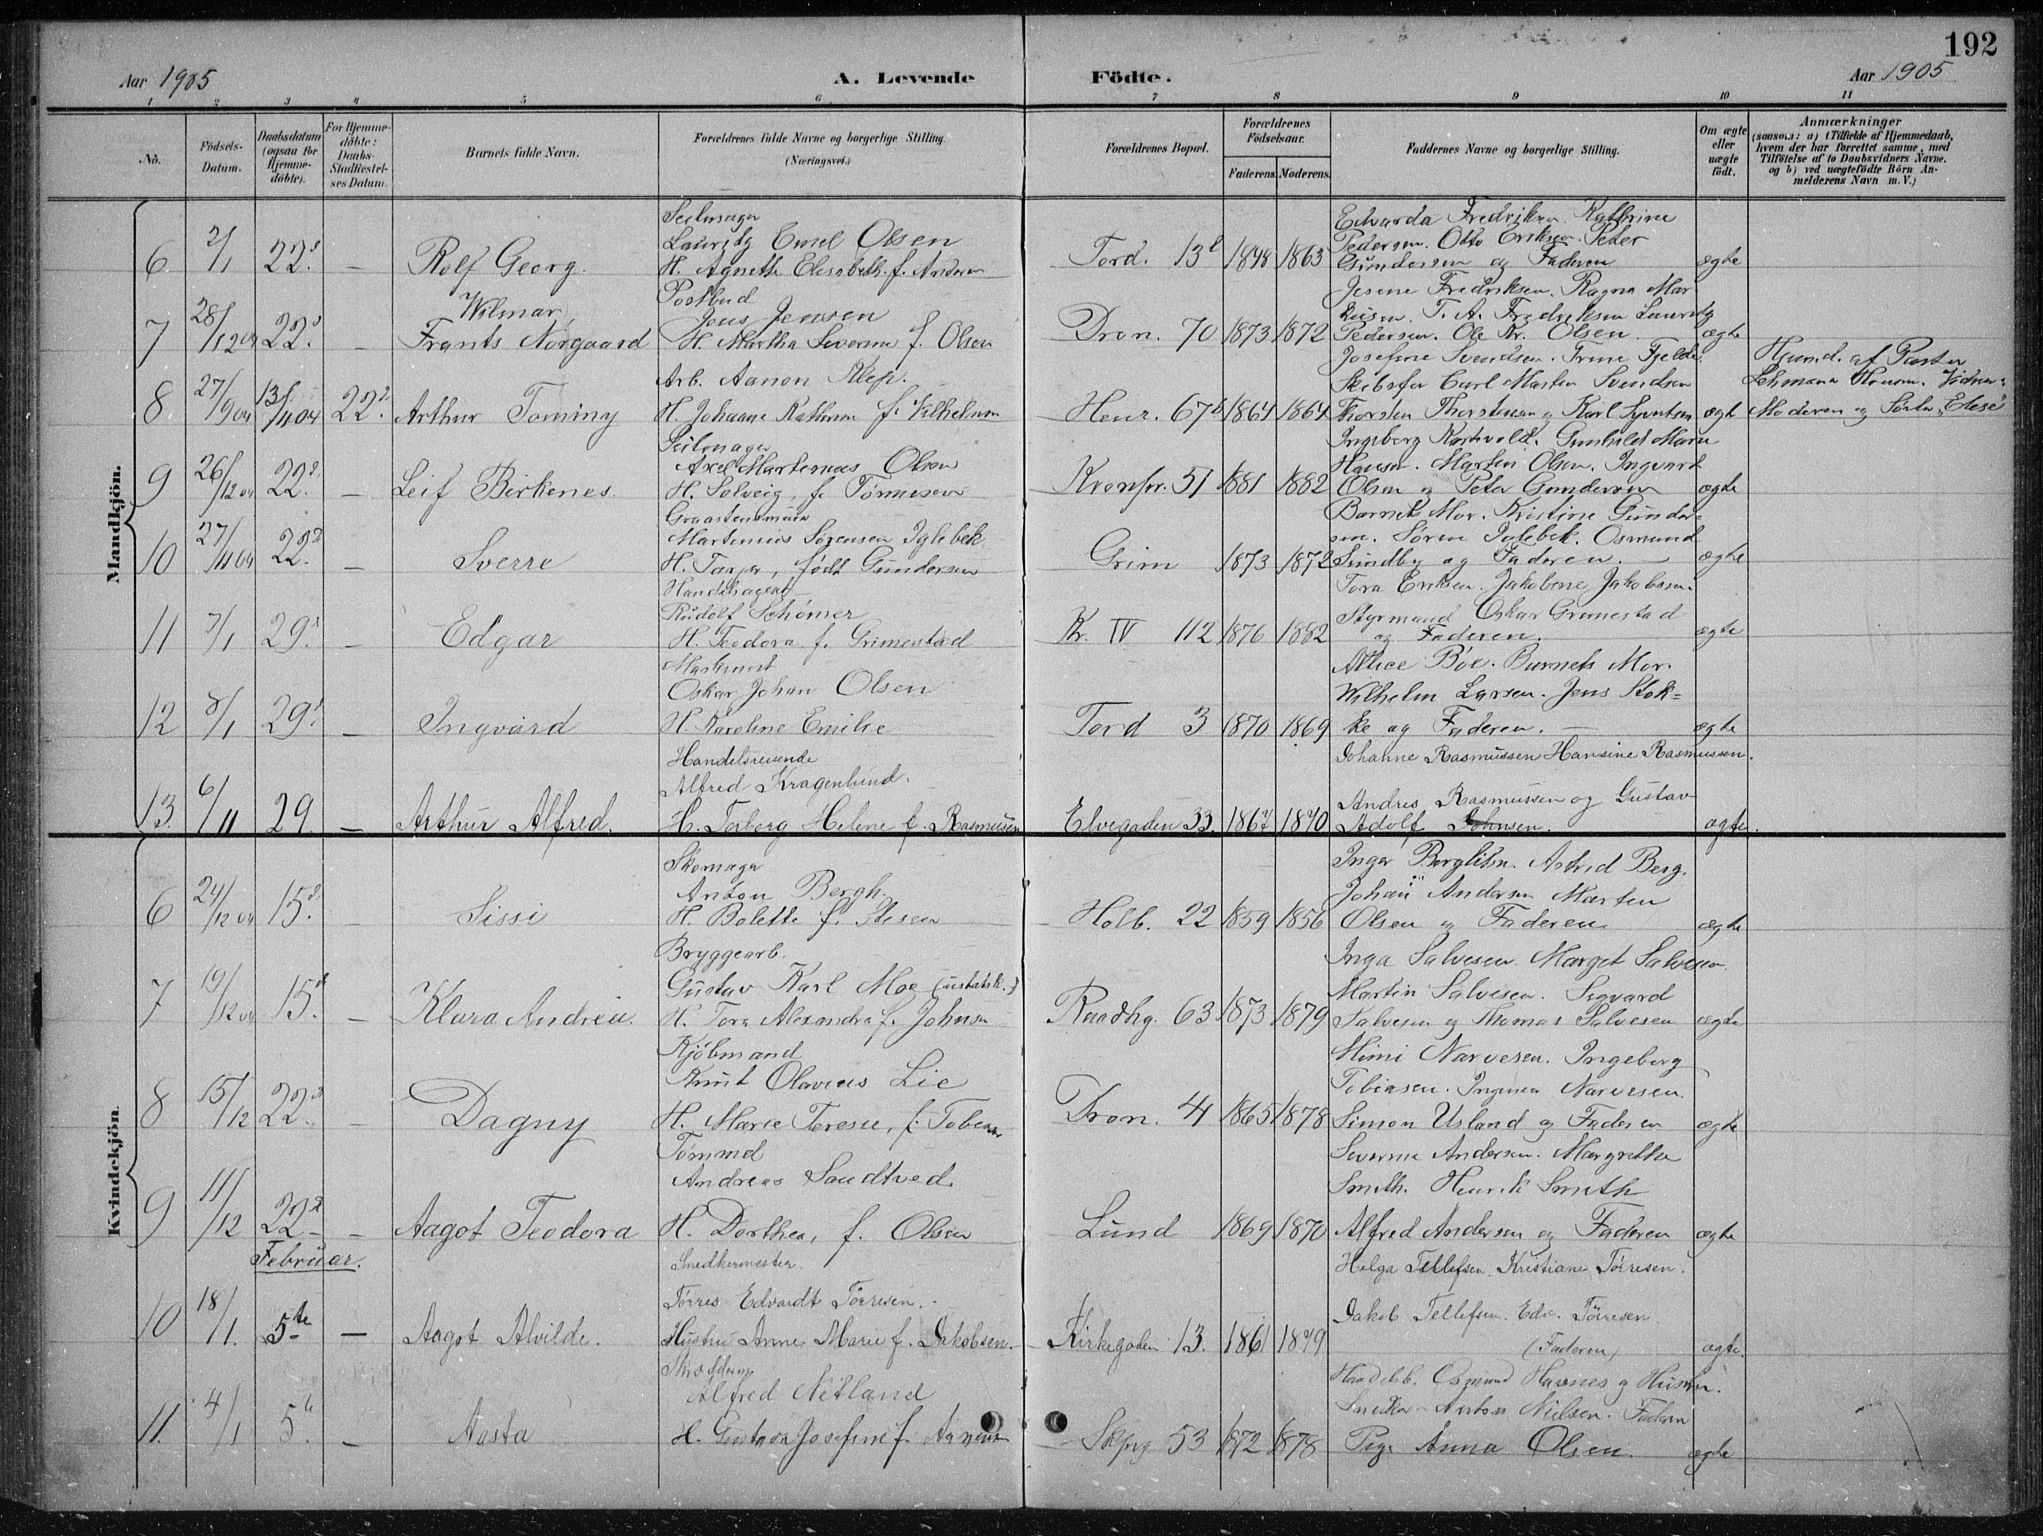 192
Aar 1905 A. Levende Födte. Aar 1905
1 2 3 4 5 6 7 8 9 10 11
No.
Födsels-
Datum.
Daabsdatum
(ogsaa for
Hjemme-
döbte).
For Hjemme-
döbte:
Daabs-
Stadfæstel-
ses Datum.
Barnets fulde Navn.
Forældrenes fulde Navne og borgerlige Stilling.
(Næringsvei.)
Forældrenes Bopæl.
Forældrenes
Födselsaar.
Faderens. Moderens.
Faddernes Navne og borgerlige Stilling.
Om ægte
eller
uægte
födt.
Anmærkninger
(saasom: a) i Tilfælde af Hjemmedaab,
hvem der har forrettet samme, med
Tilföielse af to Daabsvidners Navne.
og b) ved uægtefödte Börn An-
melderens Navn m. V.)
Mandkjön.
6 2/1 22 — Rolf Georg.
Seilmager
Emil Olsen
H. Agnethe Elisabeth f. Andersen
Tord. 13 b 1848 1863
Edvarda Fredriksen Kathrine
Pedersen. Otto Eriksen. Peder
Gundersen og Faderen
ægte
7 28/12 04 22 — Wilmar
Frants Nørgaard
Postbud
Jens Jensen
H. Martha Severine f. Olsen
Dron. 70 1873 1872
Jesine Fredriksen. Ragna Mar
kusen. T. A. Fredriksen Lauritz
Pedersen. Ole Kr. Olsen.
ægte
8 27/9 04 13/11 04 22 Arthur Tominy
Arb. Aanon Klep.
H. Johanne Kathrine f. Vilhelmsen
Henr. 67 b 1864 1864
Josefine Svendsen. Trine Fjelde.
Skibsfør Carl Marten Svendsen
Thorsten Thorstensen og Karl Syvertsen
ægte
Hjemd. af Pastor
Lehmann Hansen. Vidner:
Moderen og Søster "Elise"
9 26/12 04 22 — Leif Birkenes
Seilmager
Axel Martenius Olsen
H. Solveig, f. Tønnesen
Kronpr. 51 1881 1882
Ingeborg Gunhild Marie
Hansen. Martin Olsen. Ingvart
Olsen og Peter Gundersen
ægte
10 27/11 04 22 Sverre
Martinius Sørensen Iglebæk
H. Tarjer, født Gundersen
Grim 1873 1872
Barnets Mor. Kristine Gunder-
sen. Søren Iglebek. Osmund
Sundby og Faderen.
ægte
11 7/1 29 — Edgar
Handelsagent
Rudolf Schømer
H. Teodora f. Grimestad
Kr. IV 112 1876 1882
Tora Eriksen. Jakobine Jakobsen.
Styrmand Oskar Grimestad
og Faderen.
ægte
12 8/1 29 — Ingvard
Maskinist
Oskar Johan Olsen
H. Karoline Emilie
Tord 3 1870 1869
Allice Bøe. Barnets Mor.
Wilhelm Larsen. Jens Stok-
ke og Faderen. —
ægte
13 6/11 29 — Arthur Alfred.
Handelsreisende
Alfred Kragenlund.
H. Torborg Helene f. Rasmussen
Elvegaden 33. 1867 1870
Johanne Rasmussen Hansine Rasmussen.
Andres Rasmussen og Gustav
Adolf Johnsen.
ægte.
Kvindekjön.
6 24/12 04 15 — Sissi
Skomager
Anton Bergh.
H. Bolette f.
Holb. 22 1859 1856
Inger Astrid Berg.
Johan Andersen Marten
Olsen og Faderen
ægte
7 19/12 04 15 — Klara Andrea.
Bryggearb.
Gustav Karl Moe (ustatsk.)
H. Tora Alexandra f. Johnsen
Raadhg. 63 1873 1879
Inga Salvesen. Marget Salvesen
Martin Salvesen. Sigvard
Salvesen og Thomas Salvesen
ægte
8 15/12 22 — Dagny
Kjöbmand
Knut Olavius Lie
H. Marie Terese, f. Tobiasen
Dron. 4 1865 1878
Mimi Narvesen. Ingeborg
Tobiasen. Narvesen.
Simon Usland og Faderen
ægte
9 11/12 22 — Aagot Teodora
Tømmd
Andreas Sandtved.
H. Dorthea, f. Olsen
Lund 1869 1870
Severine Andersen. Margrethe
Smith. Henrik Smith
Alfred Andersen og Faderen
ægte
Februar.
10 18/1 5te — Aagot Alvilde.
Snedkermester.
Tørres Edvardt Tørresen.
Hustru Anne Marie f. Jakobsen
Kirkegaden 13. 1861 1879
Helga Tellefsen. Kristiane Tørresen.
Jakob Tellefsen. Edv. Tørresen
(Faderen)
ægte.
11. 4/1 5te — Aasta
Alfred Netland
H. Gustava Josefine f. Aanensen
Skpg 53 1872 1878
Osmund Havnes og Hustru.
Anton Nielsen. Faderen
Pige Anna Olsen.
ægte